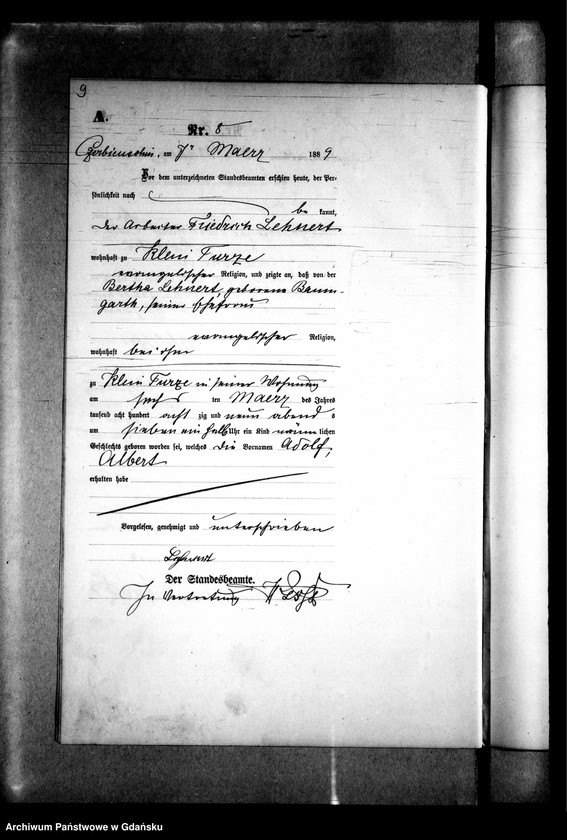 9
A.
Nr. 8
Czerbienschin, am 7ten Maerz 1889
Vor dem unterzeichneten Standesbeamten erschien heute, der Per-
sönlichkeit nach
be kannt,
der Arbeiter Friedrich Lehnert
wohnhaft zu Klein Turze
evangelischer Religion, und zeigte an, daß von der
Bertha Lehnert, geborene Baum-
garth, seiner Ehefrau
evangelischer Religion,
wohnhaft bei ihm
zu Klein Turze in seiner Wohnung
am sechs ten Maerz des Jahres
tausend acht hundert acht zig und neun abend s
um sieben ein halb Uhr ein Kind männ lichen
Geschlechts geboren worden sei, welches die Vornamen Adolf,
Albert
erhalten habe
Vorgelesen, genehmigt und unterschrieben
Lehnert
Der Standesbeamte.
In Vertretung
Archiwum Państwowe w Gdańsku